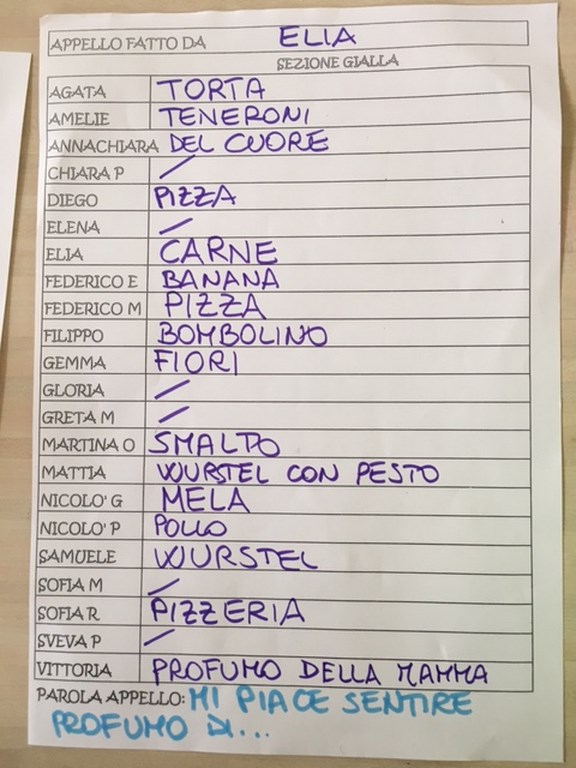 APPELLO FATTO DA ELIA
SEZIONE GIALLA
AGATA TORTA
AMELIE TENERONI
ANNACHIARA DEL CUORE
CHIARA P /
DIEGO PIZZA
ELENA /
ELIA CARNE
FEDERICO E BANANA
FEDERICO M PIZZA
FILIPPO BOMBOLINO
GEMMA FIORI
GLORIA /
GRETA M /
MARTINA O SMALTO
MATTIA WURSTEL CON PESTO
NICOLO' G MELA
NICOLO' P POLLO
SAMUELE WURSTEL
SOFIA M /
SOFIA R PIZZERIA
SVEVA P /
VITTORIA PROFUMO DELLA MAMMA
PAROLA APPELLO: MI PIACE SENTIRE
PROFUMO DI...